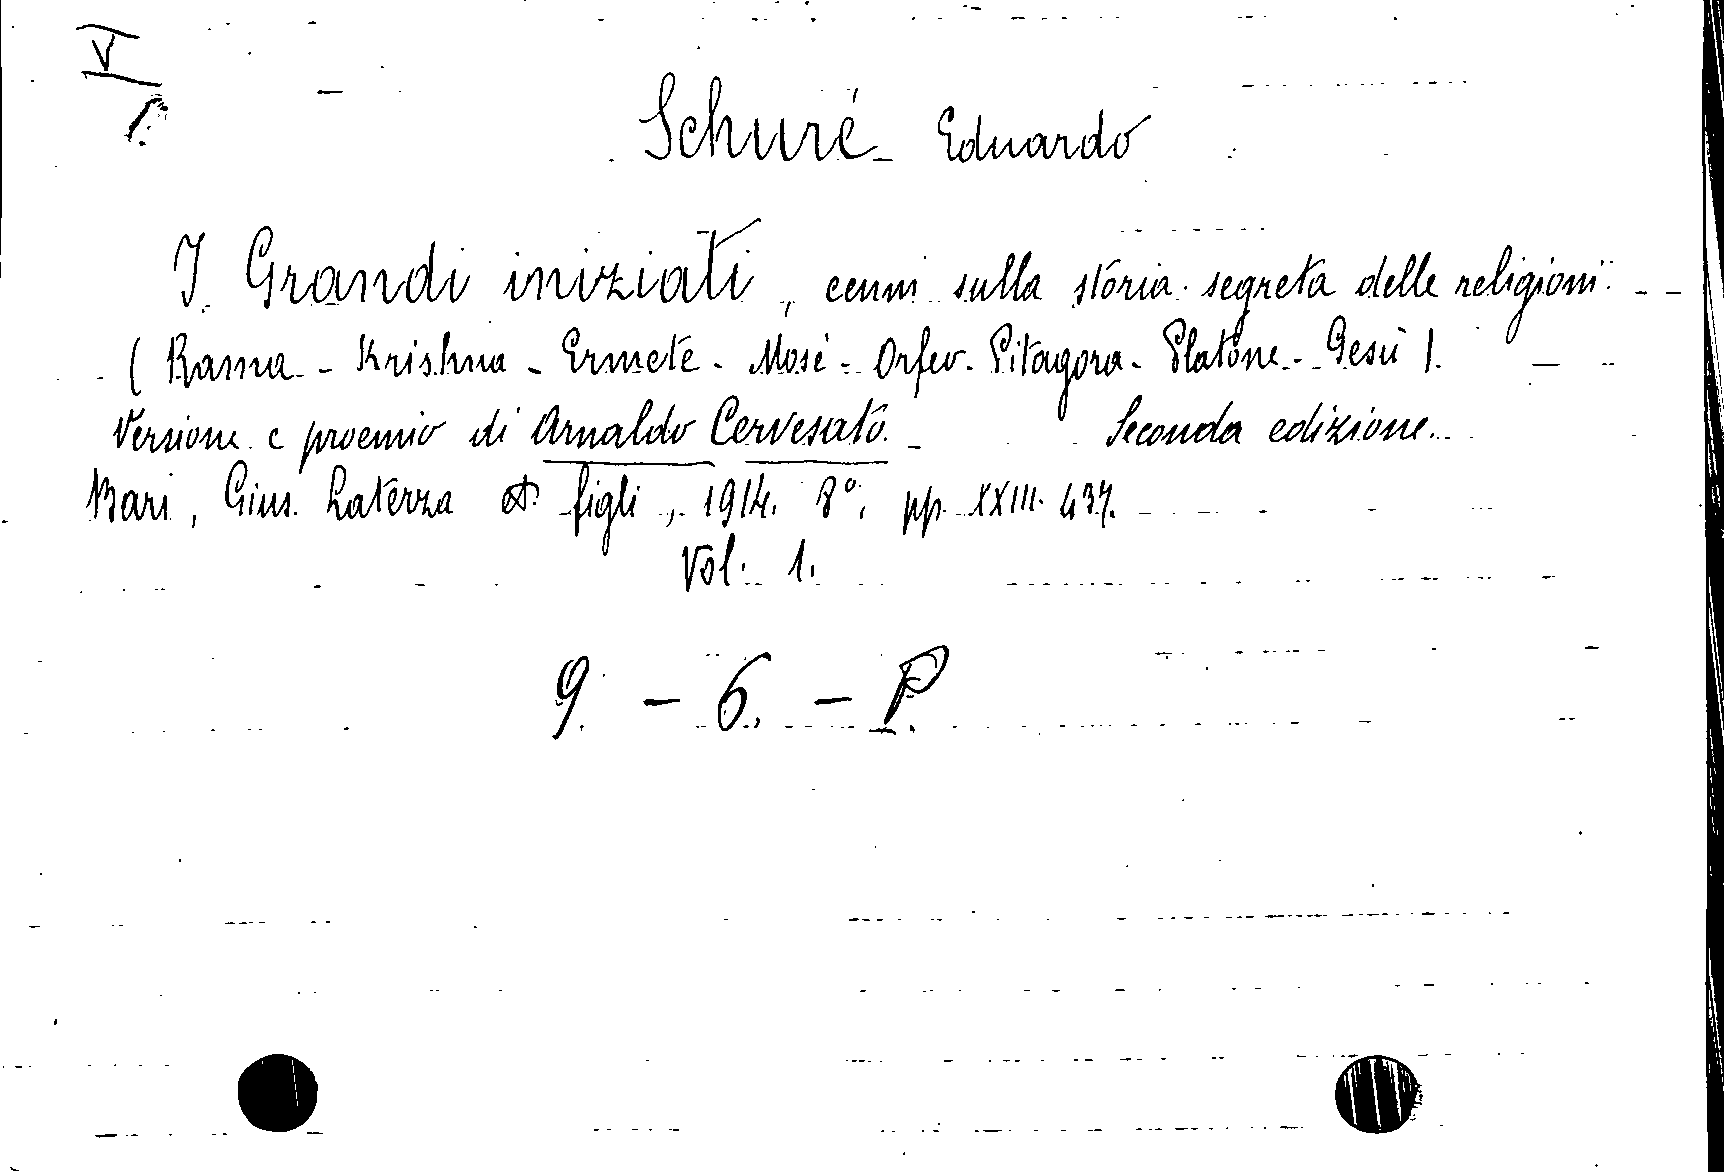 V
Schuré Eduardo
I Grandi iniziati, cenni sulla storia segreta delle religioni
(Rama - Krishna - Ermete - Mosè - Orfeo - Pitagora - Platone - Gesù).
Versione e proemio di Arnaldo Cervesato. Seconda edizione.
Bari, Gius. Laterza & figli, 1914. 8°. pp. XXIII. 437.
Vol. 1.
9. - 6. - P.